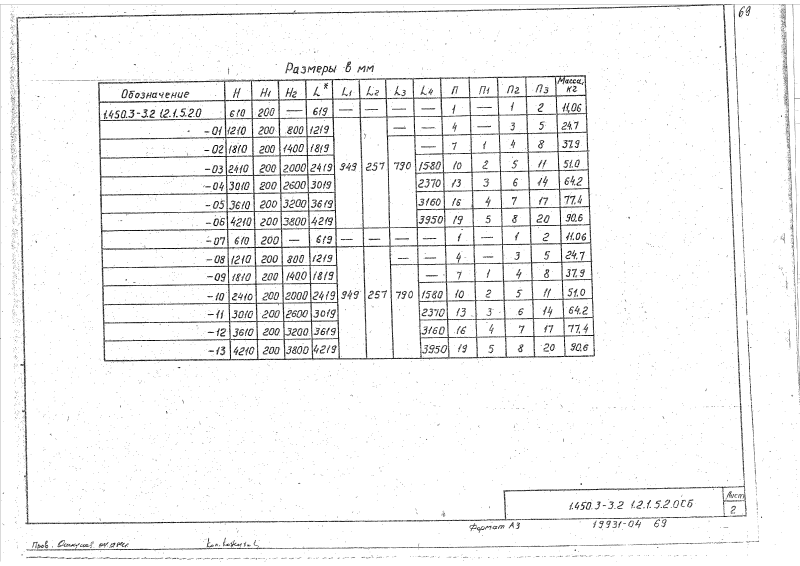 69
Размеры в мм
Обозначение H H1 H2 L* L1 L2 L3 L4 П П1 П2 П3 Масса, кг
1.450.3-3.2 1.2.1.5.2.0 610 200 — 619 — — — — 1 — 1 2 11,06
-01 1210 200 800 1219 — — 4 — 3 5 24.7
-02 1810 200 1400 1819 — 7 1 4 8 37.9
-03 2410 200 2000 2419 949 257 790 1580 10 2 5 11 51.0
-04 3010 200 2600 3019 2370 13 3 6 14 64.2
-05 3610 200 3200 3619 3160 16 4 7 17 77.4
-06 4210 200 3800 4219 3950 19 5 8 20 90.6
-07 610 200 — 619 — — — — 1 — 1 2 11.06
-08 1210 200 800 1219 — — 4 — 3 5 24.7
-09 1810 200 1400 1819 — 7 1 4 8 37.9
-10 2410 200 2000 2419 949 257 790 1580 10 2 5 11 51.0
-11 3010 200 2600 3019 2370 13 3 6 14 64.2
-12 3610 200 3200 3619 3160 16 4 7 17 77.4
-13 4210 200 3800 4219 3950 19 5 8 20 90.6
1.450.3-3.2 1.2.1.5.2.0СБ
Лист
2
Формат А3
19931-04 69
Пров.